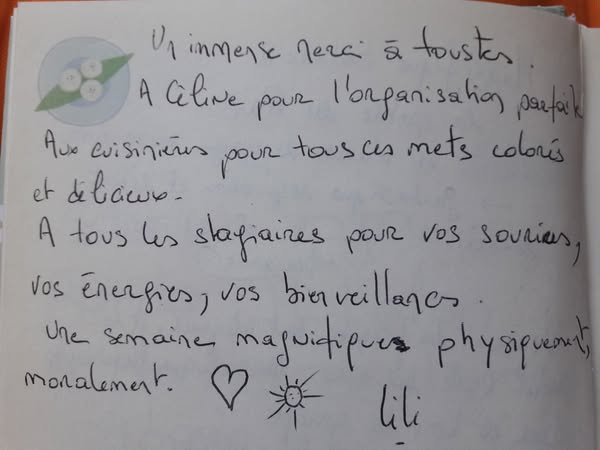 Un immense merci à toustes.
A Céline pour l'organisation parfaite
Aux cuisinières pour tous ces mets colorés
et délicieux.
A tous les stagiaires pour vos sourires,
vos énergies, vos bienveillances.
Une semaine magnifique physiquement,
moralement.
lili